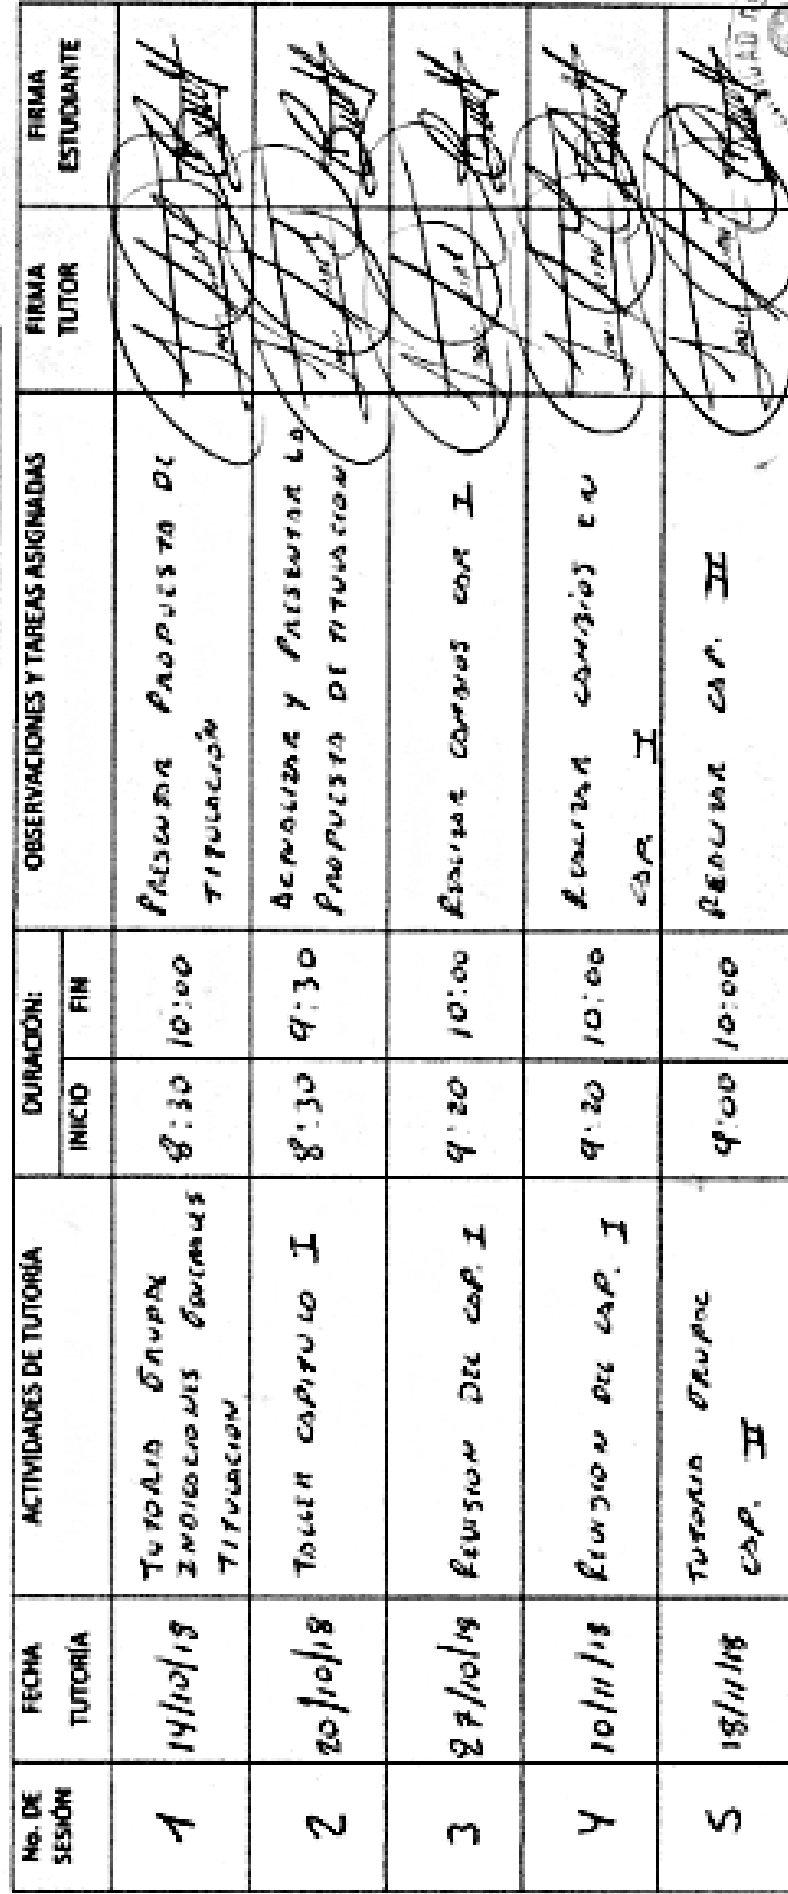 No. DE SESIÓN
FECHA TUTORÍA
ACTIVIDADES DE TUTORÍA
DURACIÓN:
INICIO
FIN
OBSERVACIONES Y TAREAS ASIGNADAS
FIRMA TUTOR
FIRMA ESTUDIANTE
1
14/10/18
TUTORIA GRUPAL
INDICACIONES GENERALES
TITULACION
8:30
10:00
PRESENTAR PROPUESTA DE
TITULACIÓN
2
20/10/18
TALLER CAPITULO I
8:30
9:30
Y PRESENTAR LA
PROPUESTA DE TITULACION
3
27/10/18
REVISION DEL CAP. I
9:20
10:00
REALIZAR CAMBIOS CAP I
4
10/11/18
REVISION DEL CAP. I
9:20
10:00
REALIZAR CAMBIOS EN
CAP. I
5
18/11/18
TUTORIA GRUPAL
CAP. II
9:00
10:00
REALIZAR CAP. II